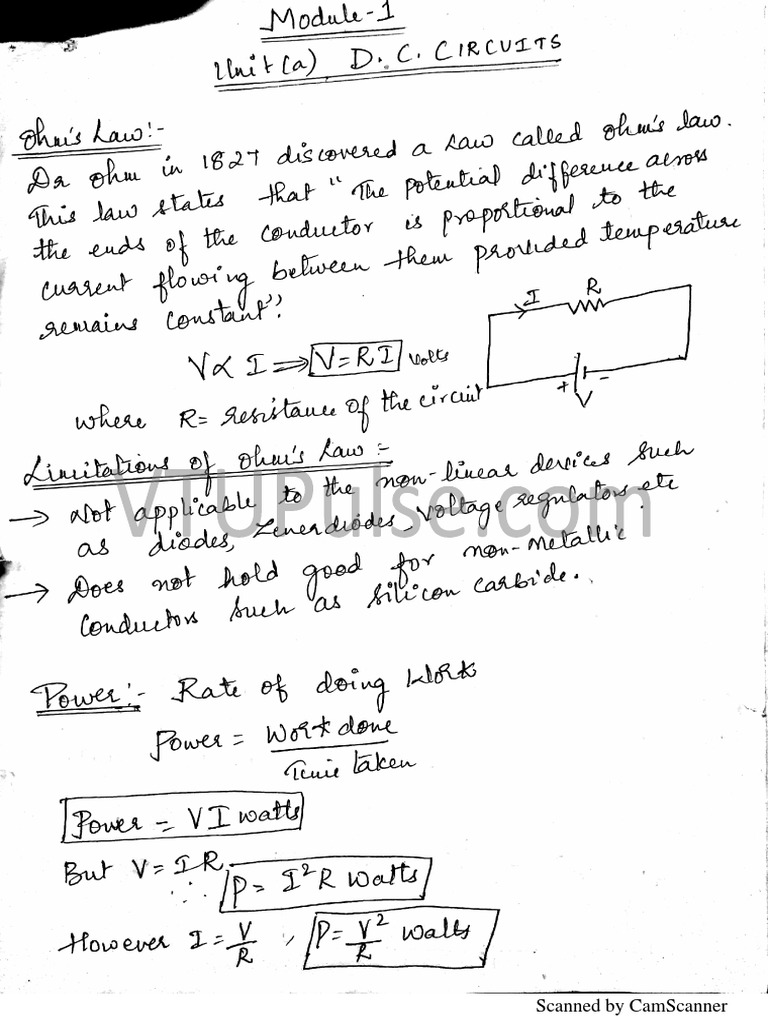 Module-1
Unit(a) D.C. CIRCUITS
Ohm's Law:-
Dr Ohm in 1827 discovered a Law called Ohm's law.
This law states that "The potential difference across
the ends of the conductor is proportional to the
current flowing between them provided temperature
remains constant".
V∝ I ⟹ V=RI Volts
I
R
+
-
V
where R= resistance of the circuit
Limitations of Ohm's Law:-
→ Not applicable to the non-linear devices such
as diodes, Zenerdiodes, Voltage regulators etc
→ Does not hold good for non-Metallic
Conductors such as silicon carbide.
VTUPulse.com
Power:- Rate of doing Work
Power = Work done
Time taken
Power = VI watts
But V = IR
∴ P = I²R watts
However I = V/R, P = V²/R watts
Scanned by CamScanner